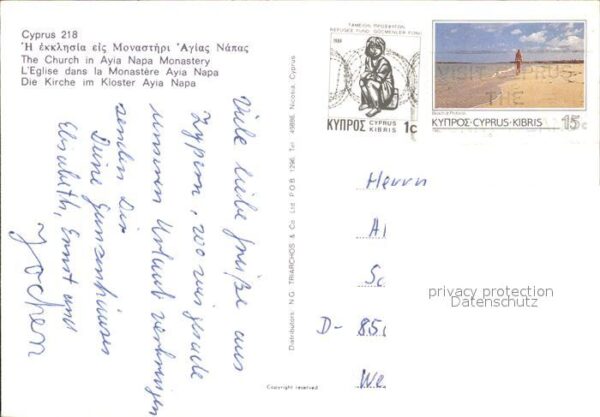 Cyprus 218
Ἡ ἐκκλησία εἰς Μοναστήρι Ἁγίας Νάπας
The Church in Ayia Napa Monastery
L'Eglise dans la Monastère Ayia Napa
Die Kirche im Kloster Ayia Napa
Viele liebe Grüße aus
Zypern, wo wir gerade
unseren Urlaub verbringen
senden Dir
Deine
Elisabeth, Ernst und
Jochen
Distributors: N.G. TRIARCHOS & Co Ltd P.O.B. 1296 Tel. 49886, Nicosia, Cyprus
Copyright reserved
ΤΑΜΕΙΟΝ ΠΡΟΣΦΥΓΩΝ
REFUGEE FUND GÖÇMENLER FONU
1984
ΚΥΠΡΟΣ CYPRUS KIBRIS 1c
VISIT CYPRUS
THE
ΚΥΠΡΟΣ·CYPRUS·KIBRIS 15c
Herrn
Al
Sc
D- 85
We
privacy protection
Datenschutz